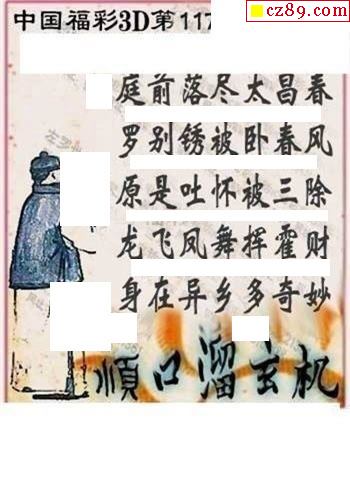 cz89.com
中国福彩3D第117
庭前落尽太昌春
罗别锈被卧春风
原是吐怀被三除
龙飞凤舞挥霍财
身在异乡多奇妙
順口溜玄机